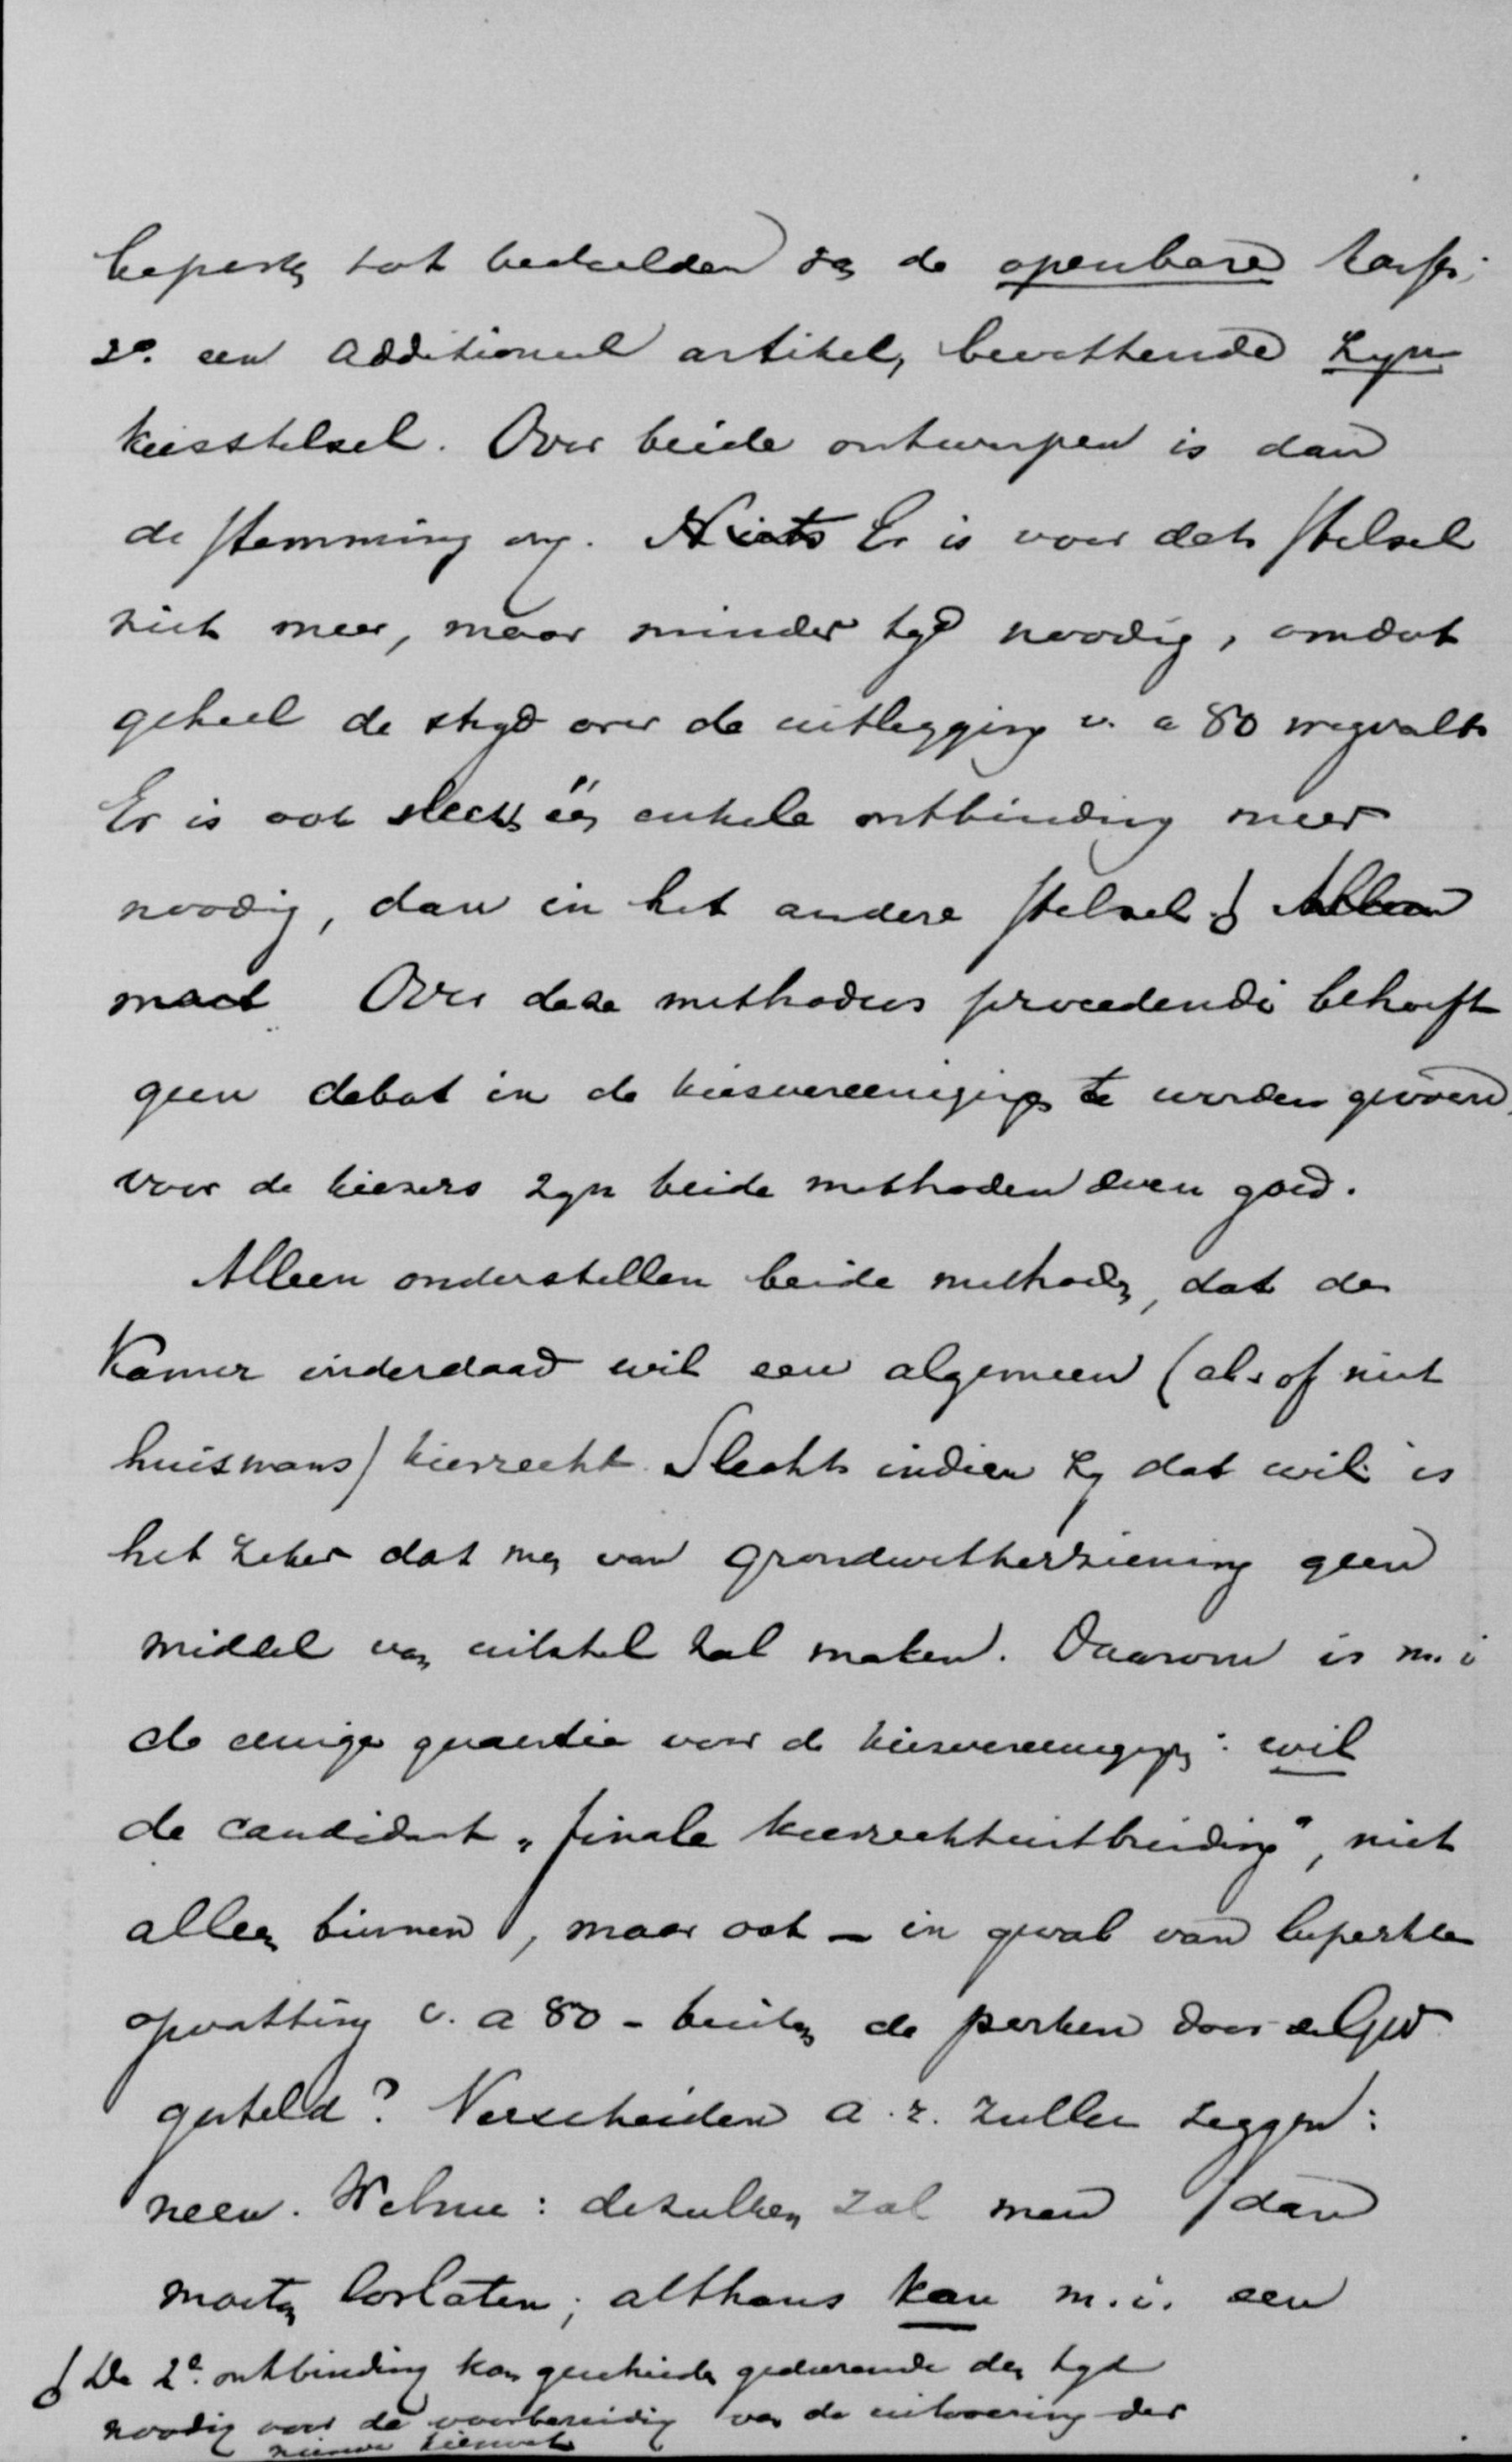 beperkt tot bedeelden van de openbare
2º. een additioneel artikel, bevattende zijn
kiesstelsel. Over beide ontwerpen is dan
de stemming vrij. Niets Er is voor dat stelsel
niet meer, maar minder tijd noodig, omdat
geheel de strijd over de uitlegging v. a 80 wegvalt
Er is ook slechts één enkele ontbinding meer
noodig, dan in het andere stelsel. Alleen
moet Over deze methodus procedendi behoeft
geen debat in de kiesvereenigingen te worden gevoerd,
voor de kiezers zijn beide methoden even goed.
Alleen onderstellen beide methoden, dat de
Kamer inderdaad wil een algemeen (al of niet
huismans) kiesrecht. Slechts indien zij dat wil is
het zeker dat men van grondwetherziening geen
middel van uitstel zal maken. Daarom is m. i
de eenige quaestie voor de kiesvereenigingen: wil
de candidaat „finale kiesrechtuitbreiding", niet
alleen binnen, maar ook - in geval van beperkte
opvatting v. a 80 - buiten de perken door de GW
gesteld? Verscheiden a. r. zullen zeggen:
neen. Welnu: dezulken zal men dan
moeten loslaten; althans kan m. i. een
De 2e ontbinding kan geschieden gedurende den tijd
noodig voor de voorbereiding van de uitvoering der
nieuwe kieswet